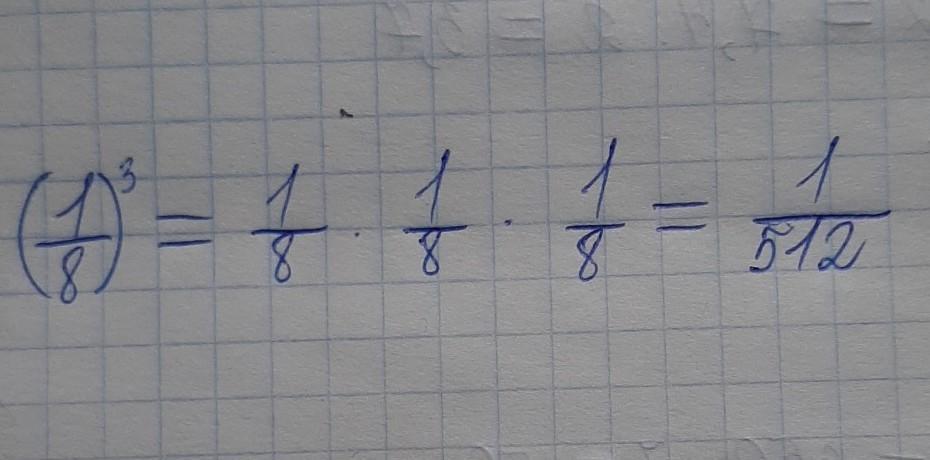 (1/8)³ = 1/8 · 1/8 · 1/8 = 1/512